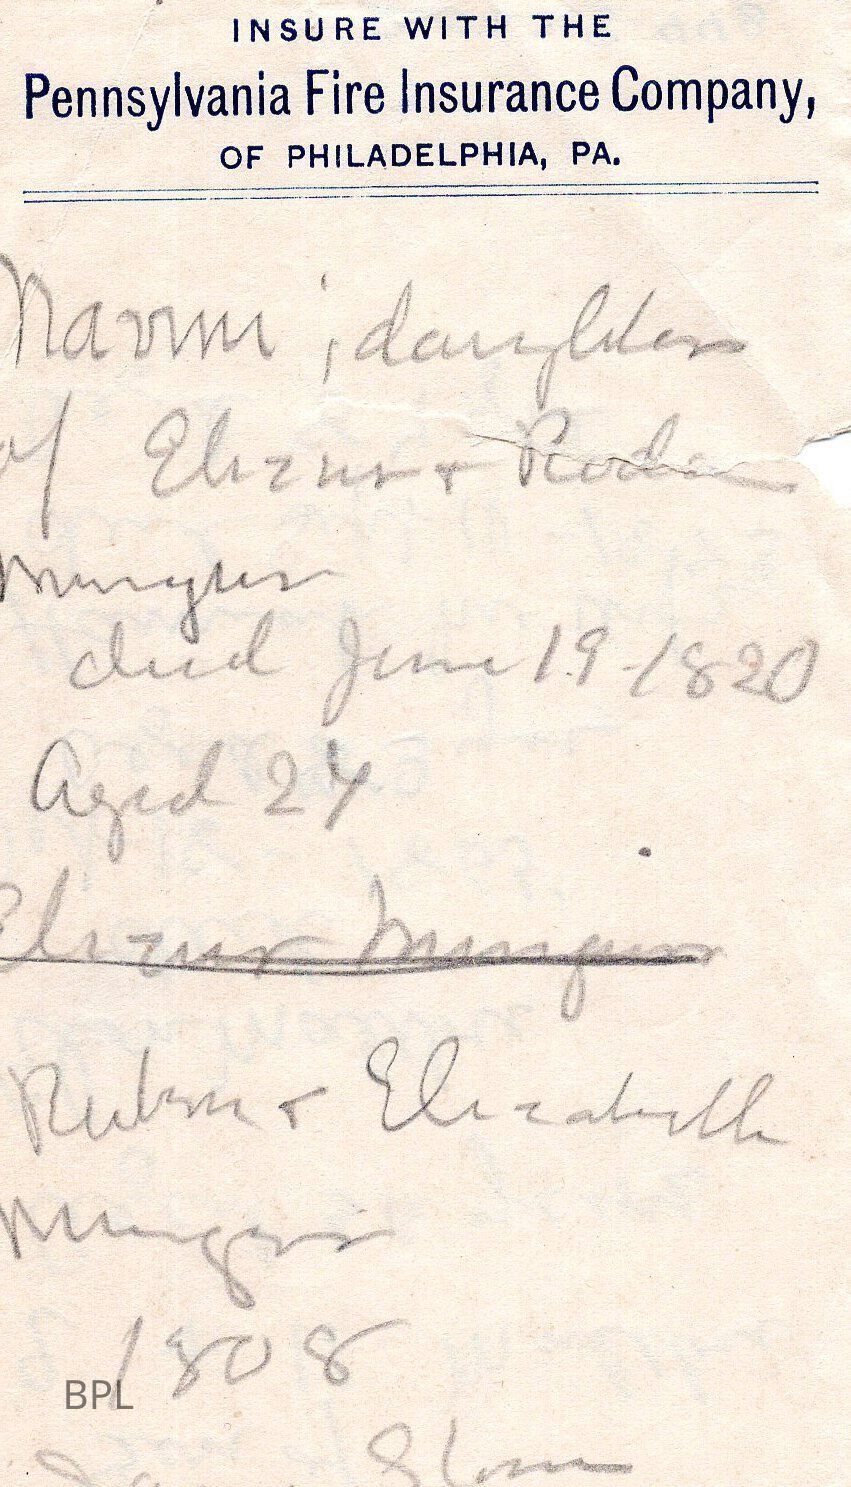 INSURE WITH THE
Pennsylvania Fire Insurance Company,
OF PHILADELPHIA, PA.
Naomi, daughter
of Elizur + Roda
Munger
died June 19-1820
Aged 24
Elizur Munger
Reuben + Elizabeth
Munger
1808
BPL